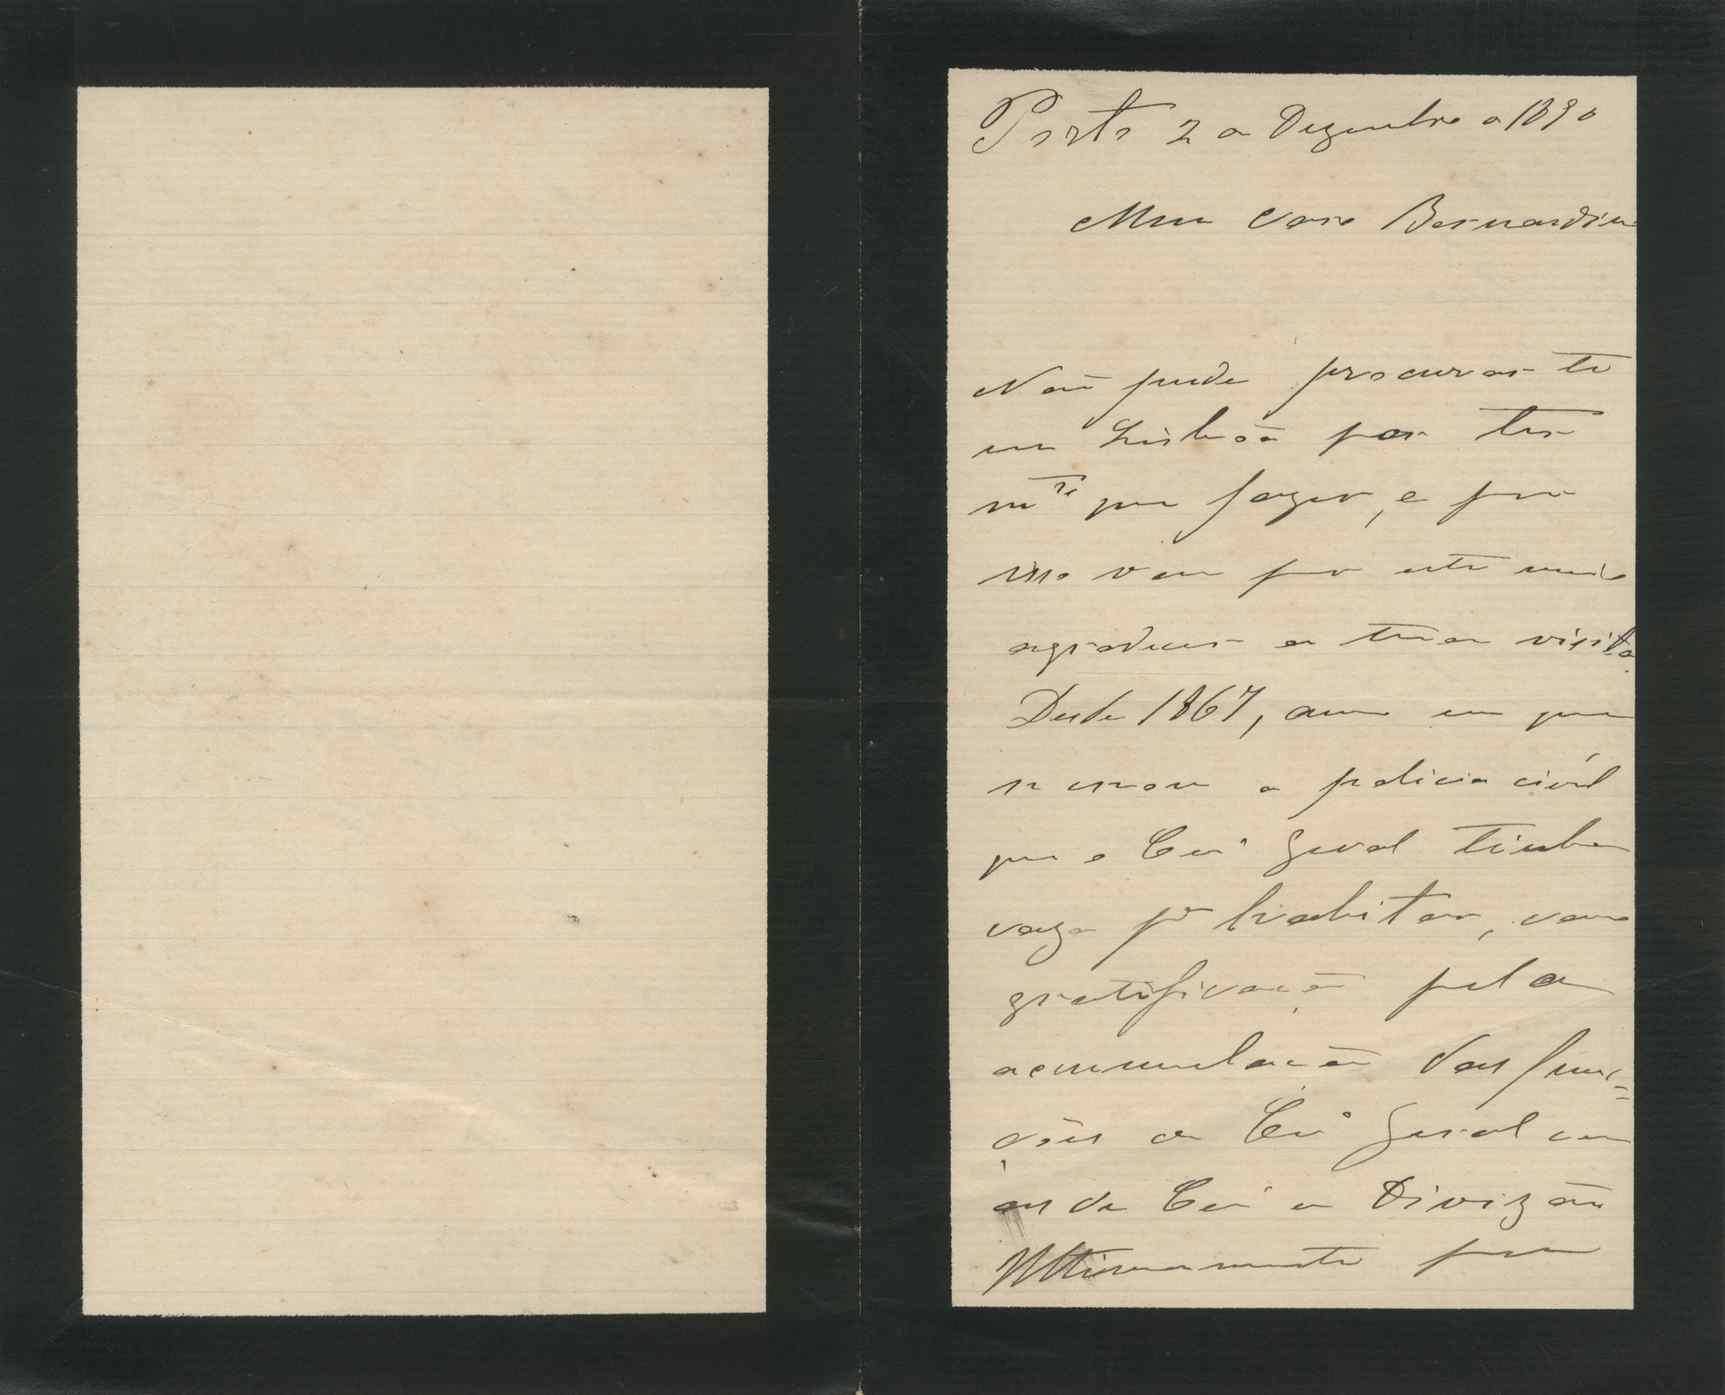 Porto 2 de Dezembro de 1890
Meu caro Bernardin
Não pude procurar-te
em Lisbôa por ter
mto que fazer, e por
isso vou por este meio
agradecer a tua visita
Desde 1867, anno em que
se creou a policia civil
que o Com Geral tinha
caza pa habitar, como
gratificação pela
accumulação das func=
ções de Como Geral com
as de Com da Divizão
Ultimamente porem